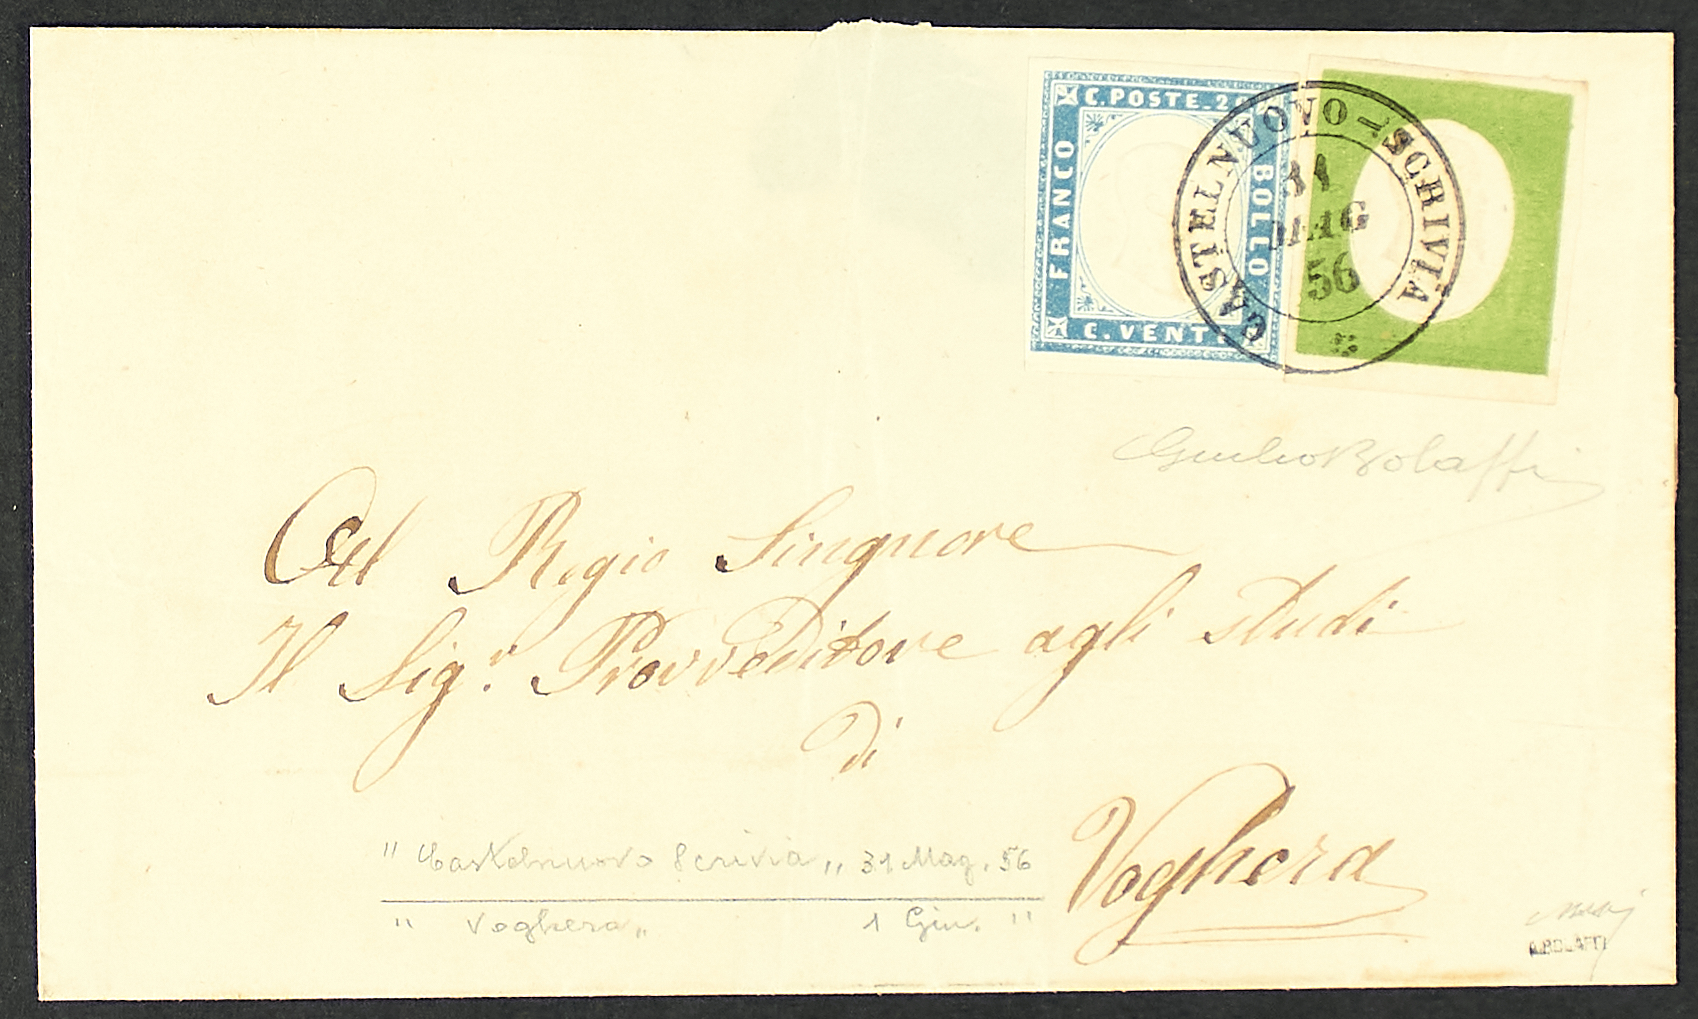 C. POSTE. 20
FRANCO
BOLLO
C. VENTI
CASTELNUOVO-SCRIVIA
31
MAG
56
Giulio Bolaffi
Al Regio Singnore
Il Sig.r Provveditore agli studi
di
Voghera
" Castelnuovo Scrivia „ 31 Mag. 56
" Voghera „ 1 Giu. "
A. BOLAFFI